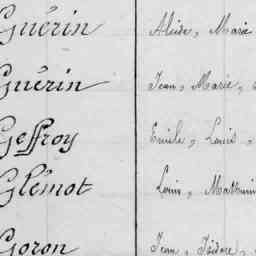 Guérin Alcide, Marie
Guérin Jean, Marie,
Geffroy Emile, Louis,
Glémot Louis, Mathurin
Goron Jean, Isidore,